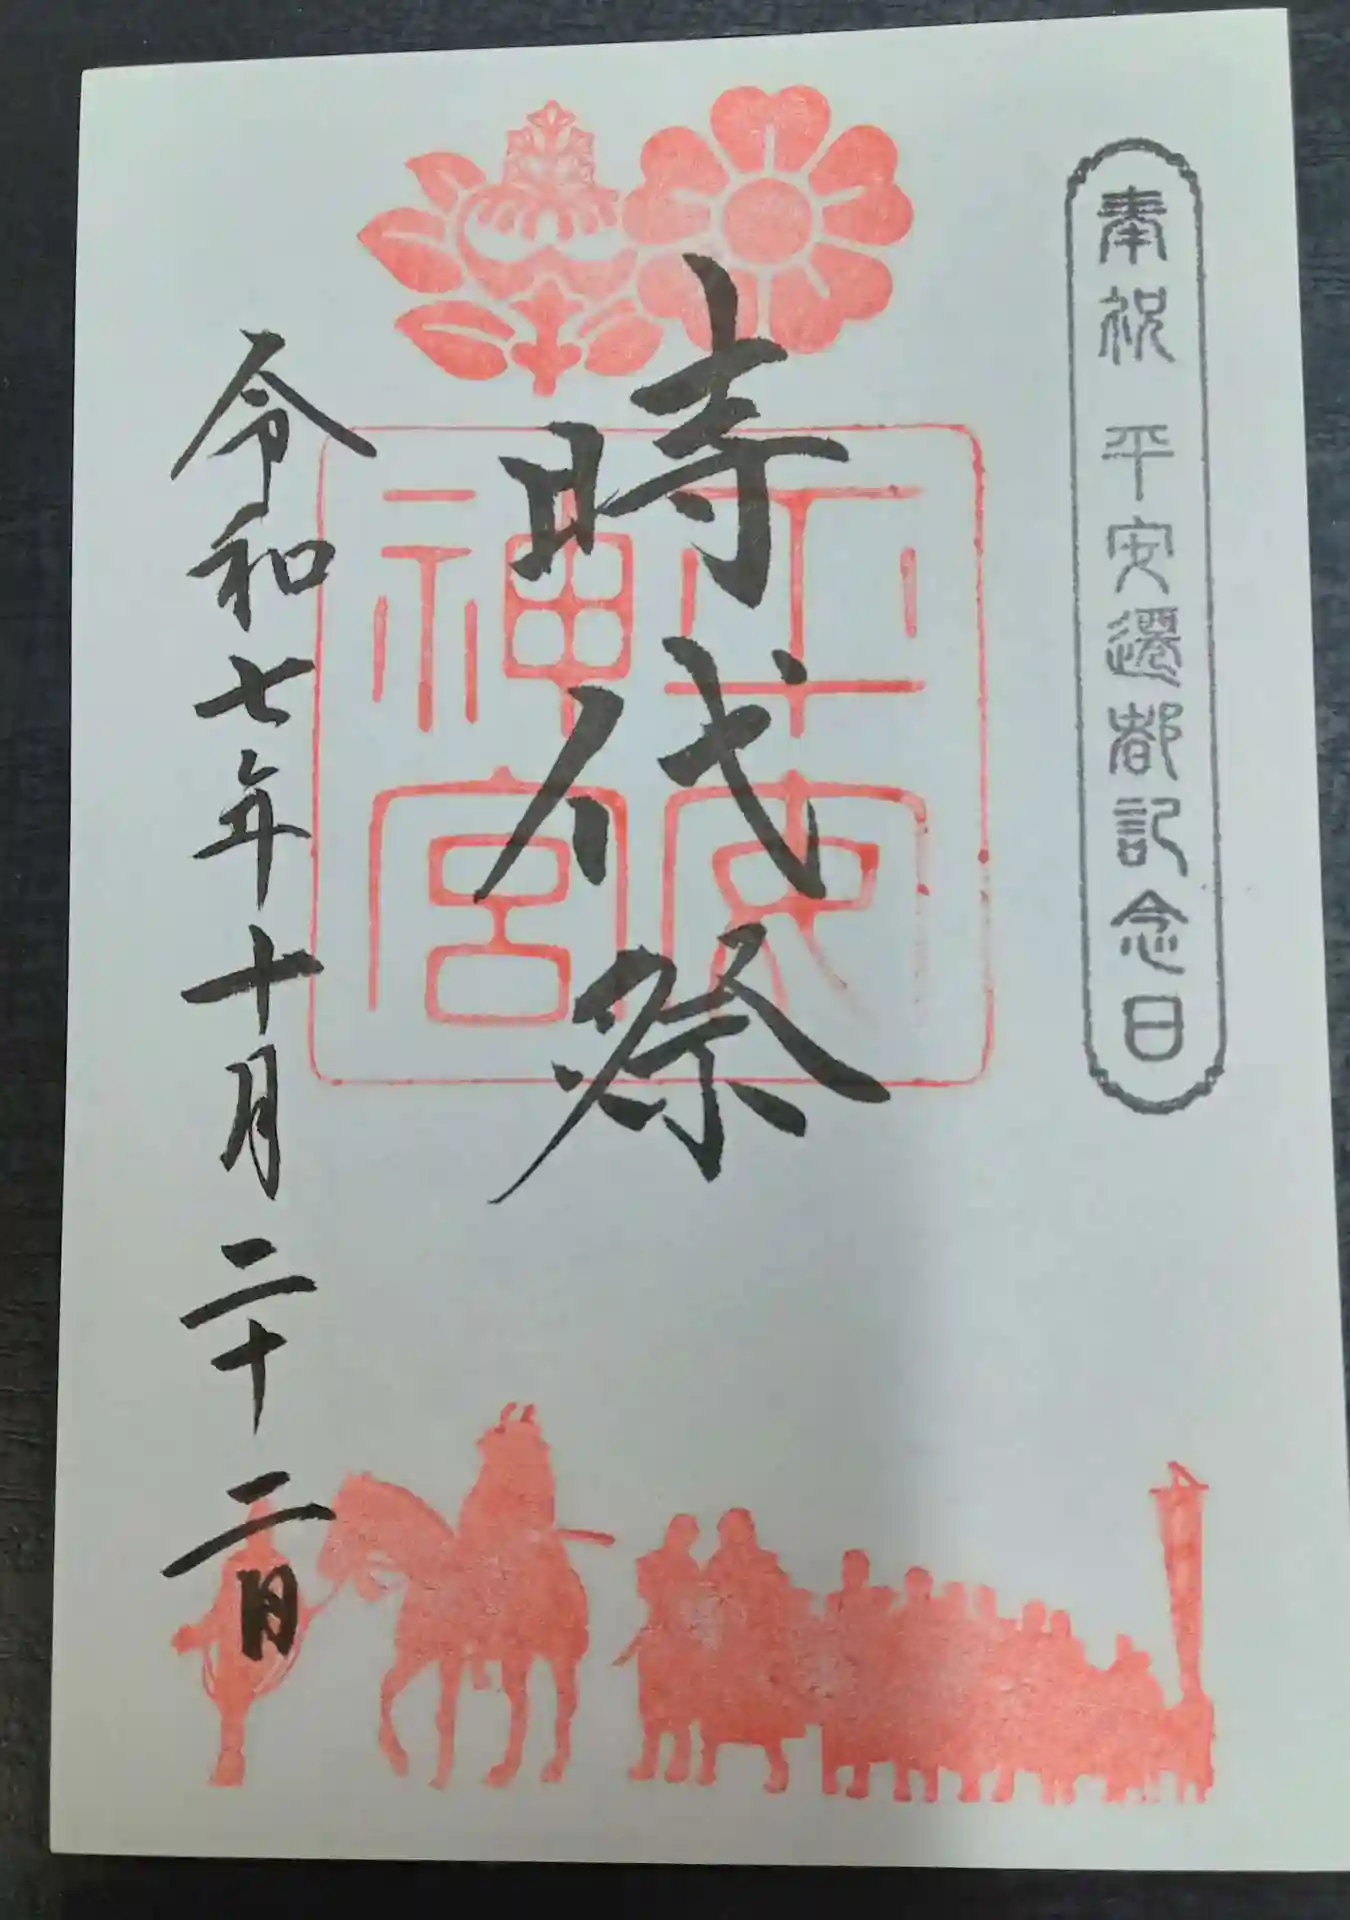 奉祝 平安遷都記念日
時代祭
平安
神宮
令和七年十月二十二日